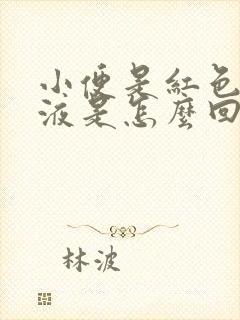 小便是紅色
液是怎麼回
林波